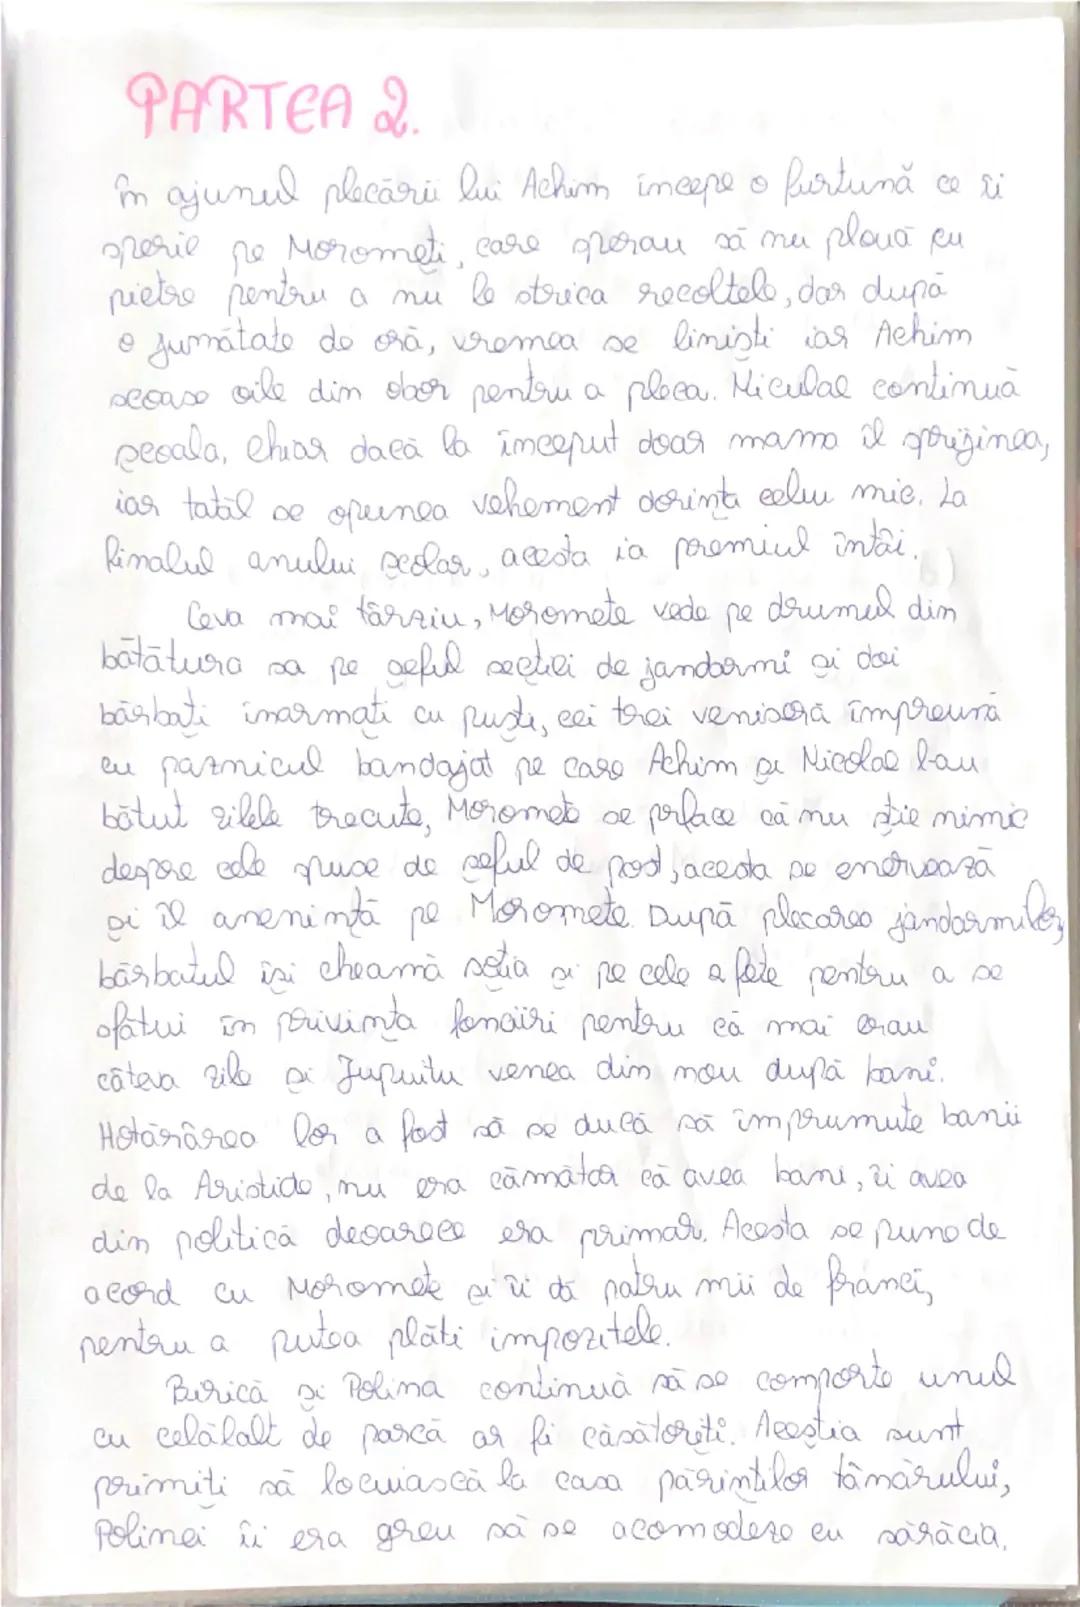 PARTEA 2.
În ajunul plecării lui Achim începe o furtună ce îi
sperie pe Moromeți, care sperau să nu plouă cu
pietre pentru a nu le strica recoltele, dar după
o jumătate de oră, vremea se liniști iar Achim
scoase oile din obor pentru a pleca. Niculae continuă
școala, chiar dacă la început doar mama îl sprijinea,
iar tatăl se opunea vehement dorința celui mic. La
finalul anului școlar, acesta ia premiul întâi.
Ceva mai târziu, Moromete vede pe drumul din
bătătura sa pe șeful secției de jandarmi și doi
bărbați înarmați cu puști, cei trei veniseră împreună
cu paznicul bandajat pe care Achim și Nicolae l-au
bătut zilele trecute, Moromete se preface că nu știe nimic
despre cele spuse de șeful de post, acesta se enervează
și îl amenință pe Moromete. După plecarea jandarmilor,
bărbatul își cheamă soția și pe cele 2 fete pentru a se
sfătui în privința fonciirii pentru că mai erau
câteva zile și Jupuitu venea din nou după bani.
Hotărârea lor a fost să se ducă să împrumute banii
de la Aristide, nu era cămătar că avea bani, îi avea
din politică deoarece era primar. Acesta se pune de
acord cu Moromete și îi dă patru mii de franci,
pentru a putea plăti impozitele.
Birică și Polina continuă să se comporte unul
cu celălalt de parcă ar fi căsătoriți. Aceștia sunt
primiți să locuiască la casa părinților tânărului,
Polinei îi era greu să se acomodeze cu sărăcia.